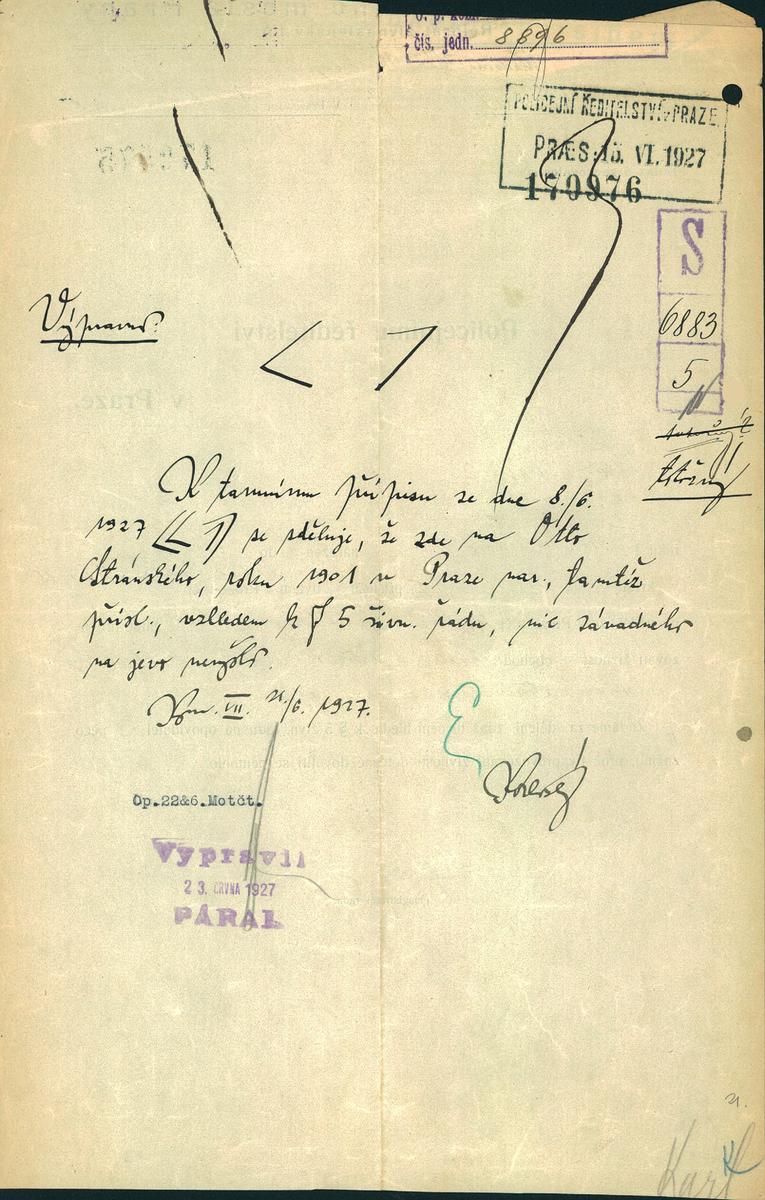 čís. jedn. 8896
POLICEJNÍ ŘEDITELSTVÍ V PRAZE.
PRÆS: 15. VI. 1927
170976
S
6883
5
Výprava:
K tamnímu přípisu ze dne 8./6.
1927 se sděluje, že zde na Otto
Stránského, roku 1901 v Praze nar., tamtéž
přísl., vzhledem k § 5 živn. řádu, nic závadného
na jevo nevyšlo.
VII. 21/6. 1927.
Op.22&6.Motčt.
Vypravil
23. ČRVNA 1927
PÁRAL
21.
Karl